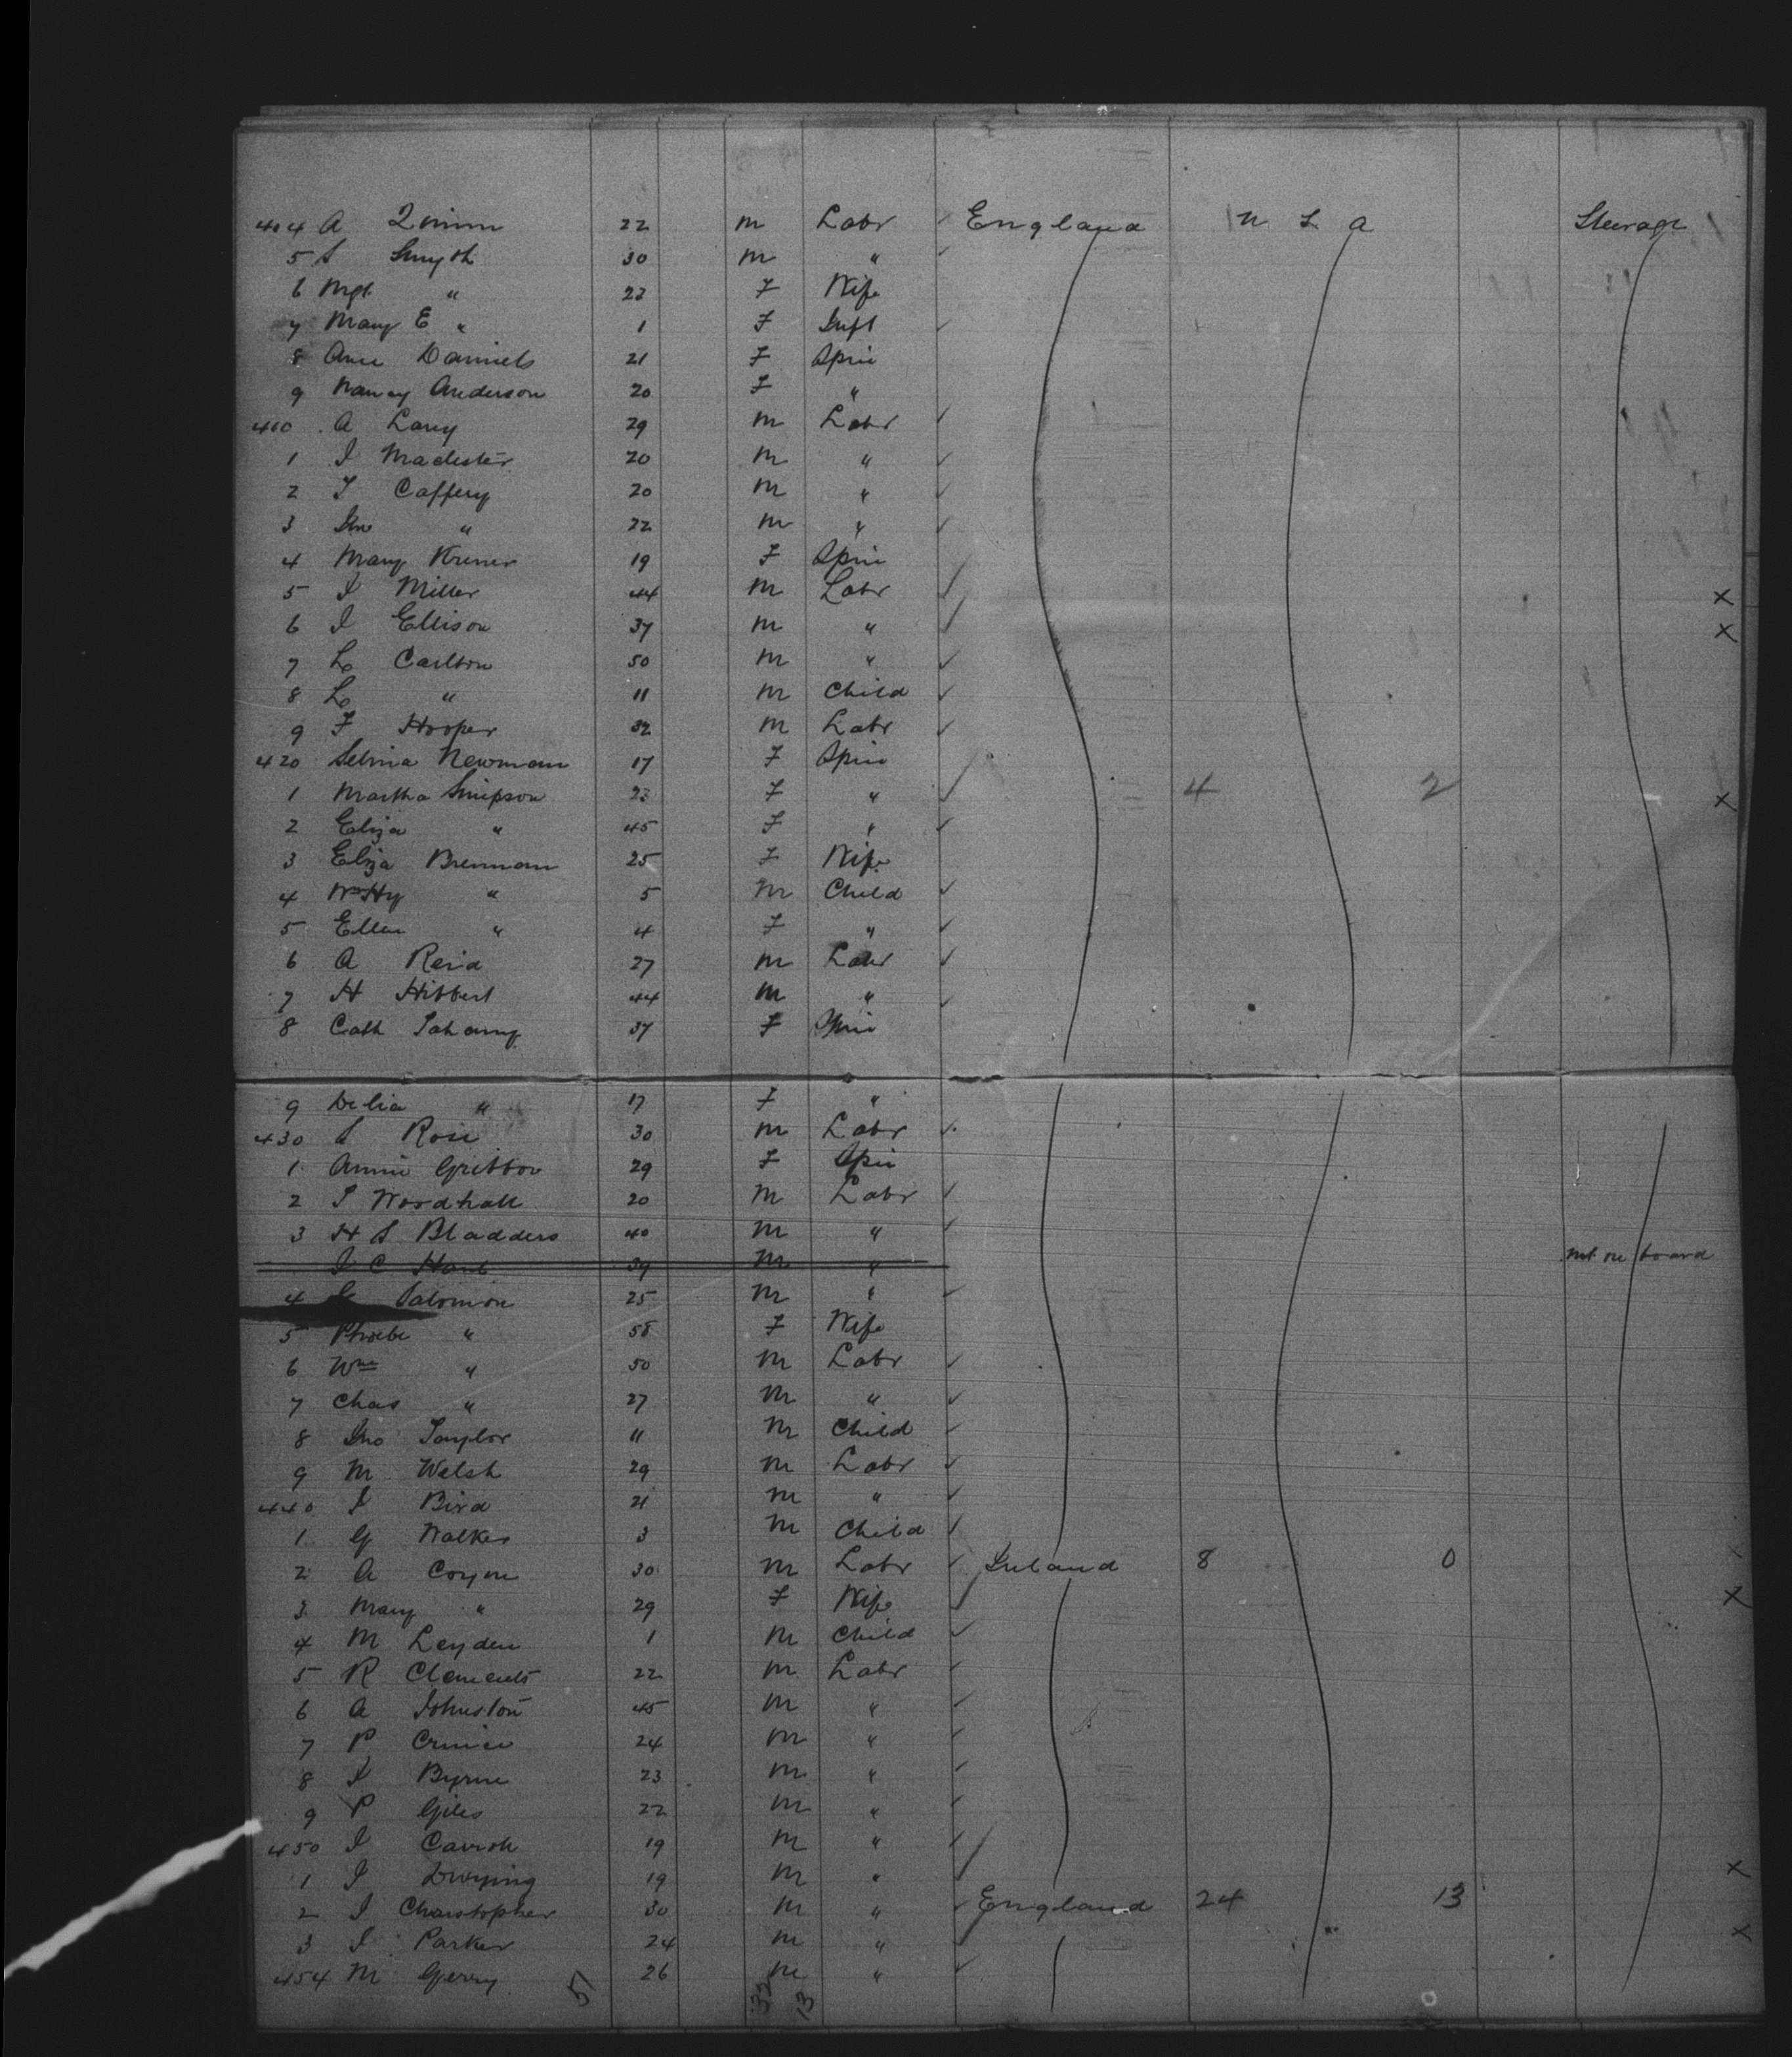 404 A Quinn 22 m Labr England U S A Steerage
5 S Smyth 30 m "
6 Mgt " 23 F Wife
7 Mary E " 1 F Inft
8 Ann Daniels 21 F Spin
9 Nancy Anderson 20 F "
410 A Lavy 29 m Labr
1 J Maclister 20 m "
2 T Caffery 20 m "
3 Jno " 22 m "
4 Mary 19 F Spin
5 J Miller 44 m Labr x
6 J Ellison 37 m " x
7 L Carlton 50 m "
8 L " 11 m Child
9 F Hooper 32 m Labr
420 Selina Newman 17 F Spin
1 Martha Simpson 23 F " 4 2 x
2 Eliza " 45 F "
3 Eliza Brennan 25 F Wife
4 Wm Hy " 5 m Child
5 Ellen " 4 F "
6 A Reid 27 m Labr
7 H Hibbert 44 m "
8 Cath 37 F Spin
9 Delia " 17 F "
430 S Rose 30 m Labr
1 Annie Gribbon 29 F Spin
2 S Woodhall 20 m Labr
3 H S Bladders 40 m "
J C Hand 39 m " not on board
4 Salomon 25 m "
5 Phoebe " 58 F Wife
6 Wm " 50 m Labr
7 Chas " 27 m "
8 Jno Taylor 11 m Child
9 M Welsh 29 m Labr
440 J Bird 21 m "
1 G Walker 3 m Child
2 A Coyne 30 m Labr Ireland 8 0
3 Mary " 29 F Wife x
4 M Leyden 1 m Child
5 R Clements 22 m Labr
6 A Johnston 45 m "
7 P 24 m "
8 J Byrne 23 m "
9 P Giles 22 m "
450 J Carroll 19 m "
1 J 19 m " x
2 J Christopher 30 m " England 24 13
3 J Parker 24 m " x
454 M Gerry 26 m "
51 32 13